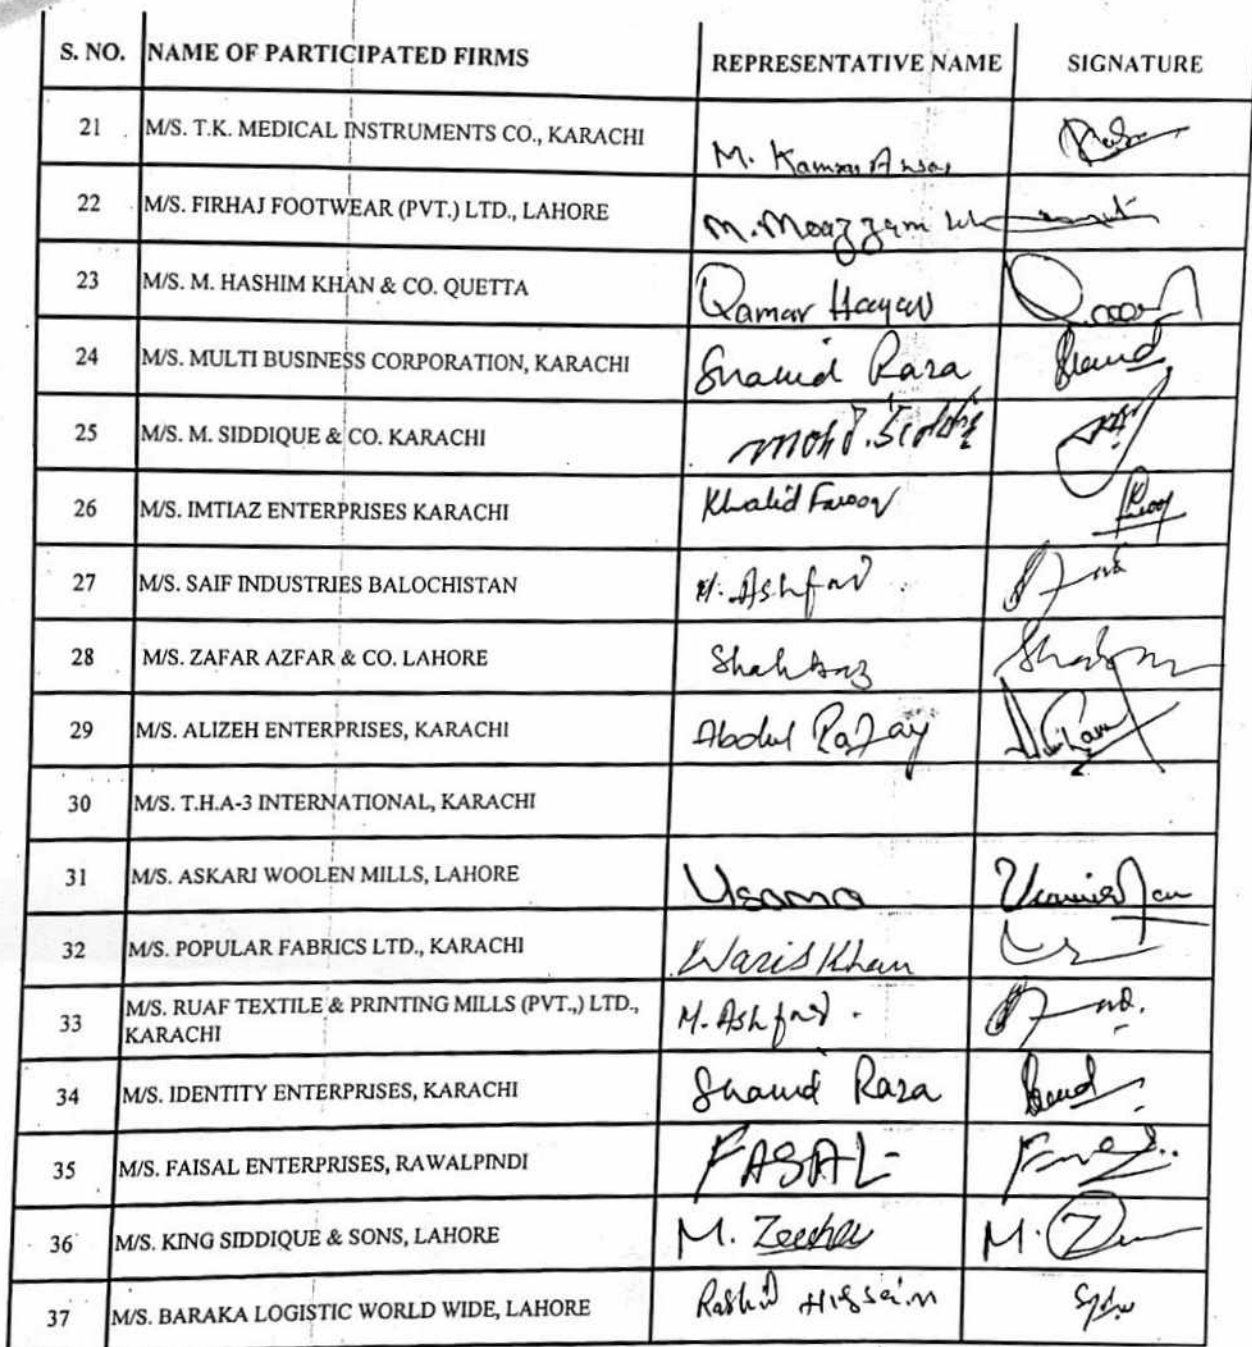 S. NO. NAME OF PARTICIPATED FIRMS REPRESENTATIVE NAME SIGNATURE
21 M/S. T.K. MEDICAL INSTRUMENTS CO., KARACHI M. Kamran Ansari
22 M/S. FIRHAJ FOOTWEAR (PVT.) LTD., LAHORE M. Moazzam
23 M/S. M. HASHIM KHAN & CO. QUETTA Qamar Hayat
24 M/S. MULTI BUSINESS CORPORATION, KARACHI Shahid Raza
25 M/S. M. SIDDIQUE & CO. KARACHI Mohd. Siddiq
26 M/S. IMTIAZ ENTERPRISES KARACHI Khalid Farooq
27 M/S. SAIF INDUSTRIES BALOCHISTAN M. Ashfaq
28 M/S. ZAFAR AZFAR & CO. LAHORE Shahbaz
29 M/S. ALIZEH ENTERPRISES, KARACHI Abdul Rafay
30 M/S. T.H.A-3 INTERNATIONAL, KARACHI
31 M/S. ASKARI WOOLEN MILLS, LAHORE Usama
32 M/S. POPULAR FABRICS LTD., KARACHI Waris Khan
33 M/S. RUAF TEXTILE & PRINTING MILLS (PVT.,) LTD., M. Ashfaq
KARACHI
34 M/S. IDENTITY ENTERPRISES, KARACHI Shahid Raza
35 M/S. FAISAL ENTERPRISES, RAWALPINDI FASAL
36 M/S. KING SIDDIQUE & SONS, LAHORE M. Zeeshan M.
37 M/S. BARAKA LOGISTIC WORLD WIDE, LAHORE Rashid Hussain